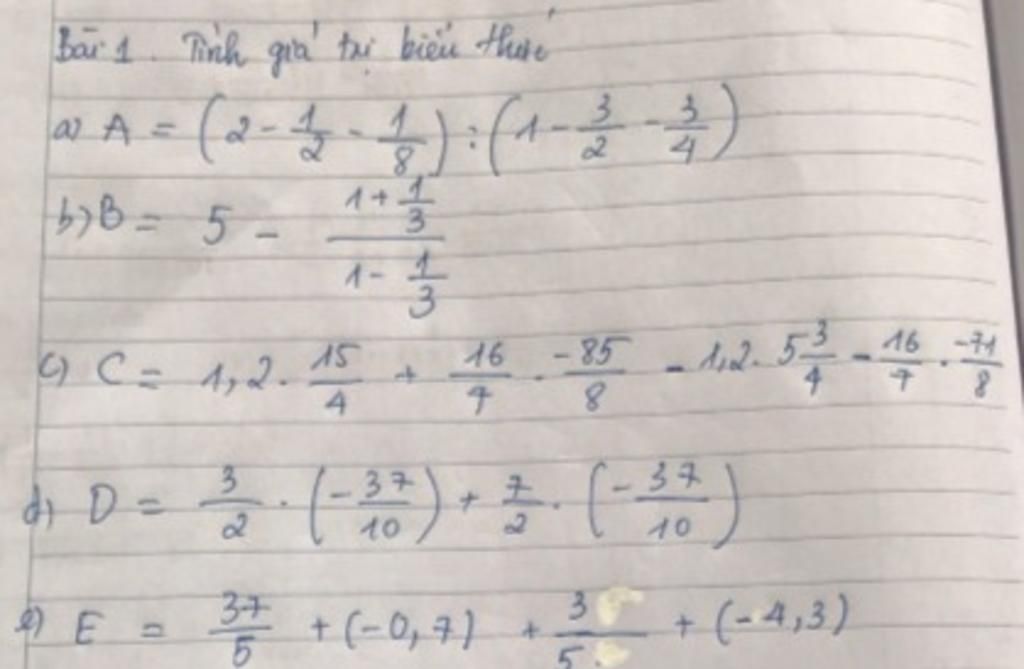 Bài 1. Tính giá trị biểu thức
a) A = (2 - 1/2 - 1/8) : (1 - 3/2 - 3/4)
b) B = 5 - (1 + 1/3)/(1 - 1/3)
c) C = 1,2 . 15/4 + 16/7 . -85/8 - 1,2 . 5 3/4 - 16/7 . -71/8
d) D = 3/2 . (-37/10) + 7/2 . (-37/10)
e) E = 37/5 + (-0,7) + 3/5 + (-4,3)